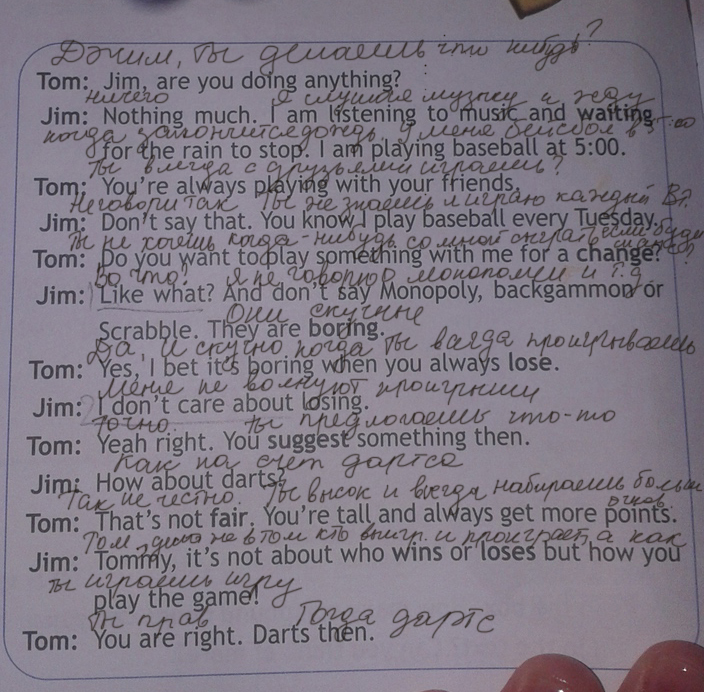 Джим, ты делаешь что нибудь?
Tom: Jim, are you doing anything?
ничего я слушаю музыку и жду
Jim: Nothing much. I am listening to music and waiting
когда закончится дождь. У меня бейсбол в
for the rain to stop. I am playing baseball at 5:00.
ты всегда с друзьями играешь?
Tom: You're always playing with your friends.
Не говори так Ты не знаешь я играю каждый В?
Jim: Don't say that. You know I play baseball every Tuesday.
Ты не хочешь когда-нибудь со мной сыграть если
Tom: Do you want to play something with me for a change?
Во что? я не говорю о монополии и т.д
Jim: Like what? And don't say Monopoly, backgammon or
Они скучные
Scrabble. They are boring.
Да, и скучно когда ты всегда проигрываешь
Tom: Yes, I bet it's boring when you always lose.
Меня не волнуют проигрыши
Jim: I don't care about losing.
Точно. ты предлогаешь что-то
Tom: Yeah right. You suggest something then.
Как на счет дартса
Jim: How about darts?
Так не честно. Ты высок и всегда набираешь больш
очков
Tom: That's not fair. You're tall and always get more points.
Том, не в том кто выигр. и проиграет, а как
Jim: Tommy, it's not about who wins or loses but how you
ты играешь игру
play the game!
Ты прав Тогда дартс
Tom: You are right. Darts then.